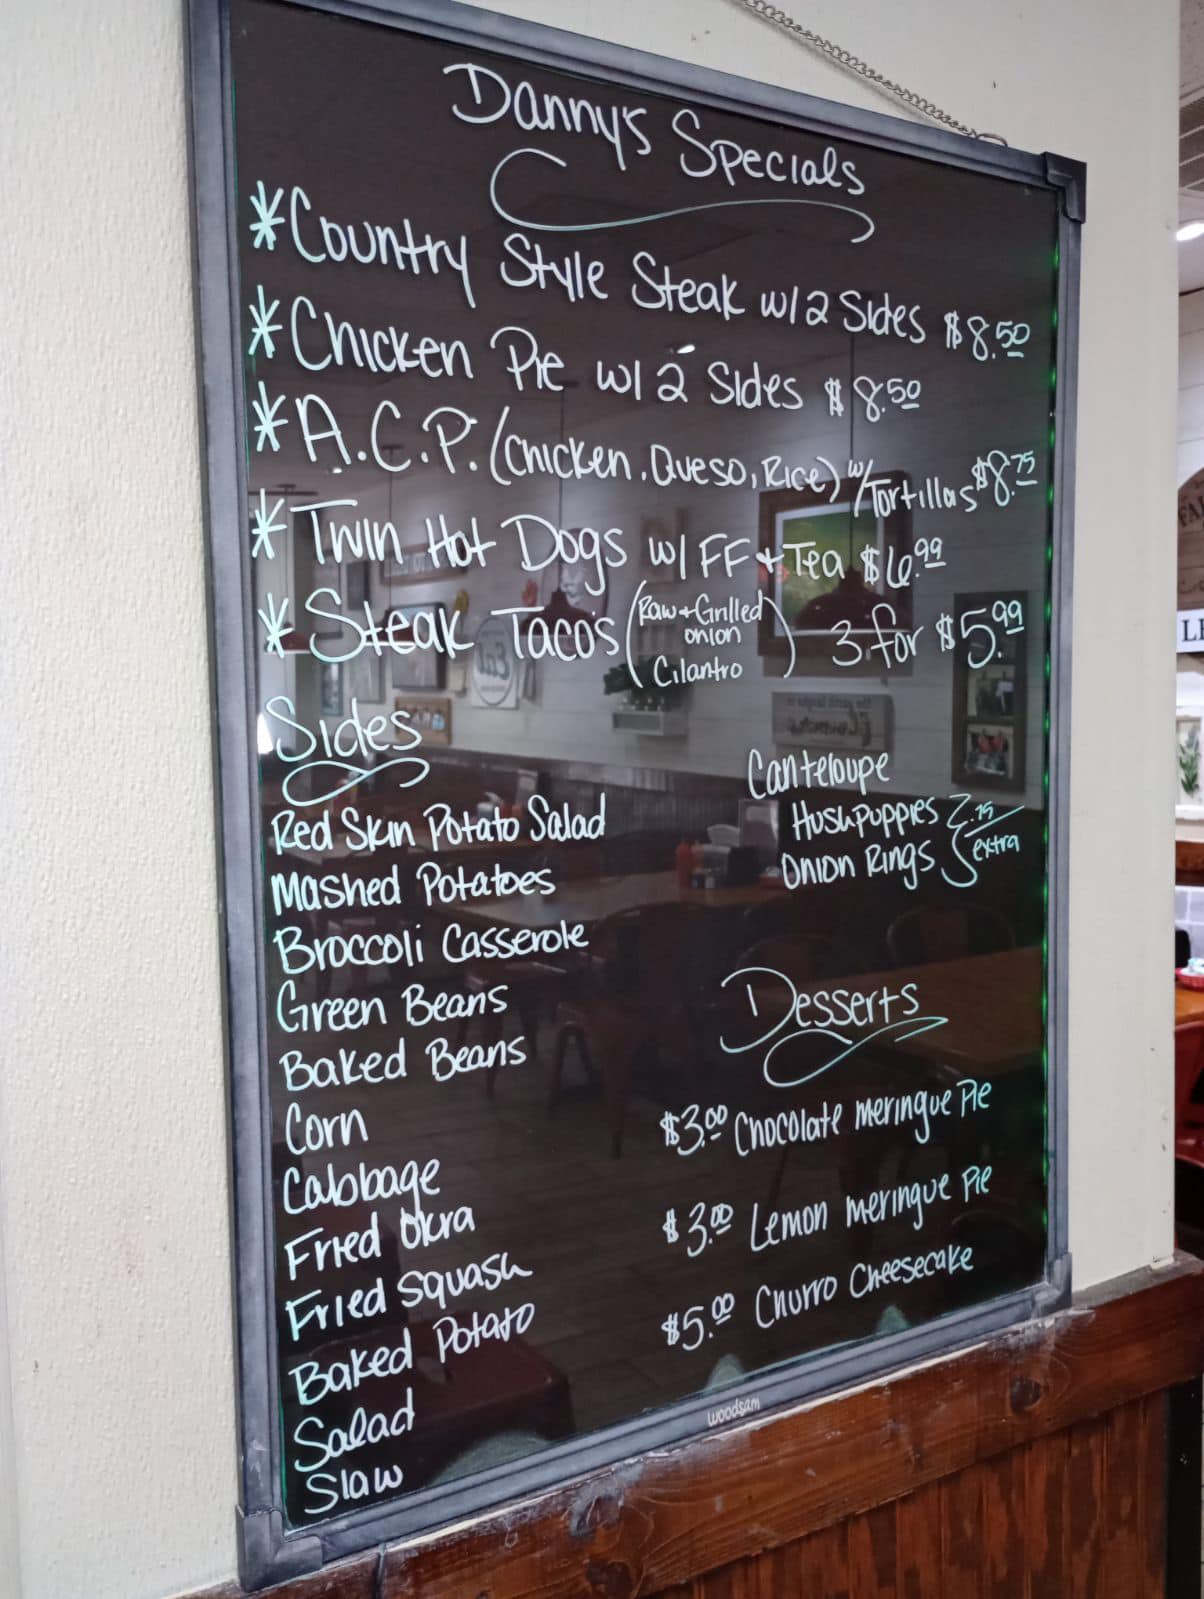 Danny's Specials
*Country Style Steak w/ 2 Sides $8.50
*Chicken Pie w/ 2 Sides $8.50
*A.C.P. (Chicken, Queso, Rice) w/Tortillas $8.75
*Twin Hot Dogs w/ FF + Tea $6.99
*Steak Taco's (Raw + Grilled onion Cilantro) 3 for $5.99
Sides
Red Skin Potato Salad
Mashed Potatoes
Broccoli Casserole
Green Beans
Baked Beans
Corn
Cabbage
Fried Okra
Fried Squash
Baked Potato
Salad
Slaw
Canteloupe
Hushpuppies
Onion Rings } .75 extra
Desserts
$3.00 Chocolate meringue Pie
$3.00 Lemon meringue Pie
$5.00 Churro Cheesecake
woodsam